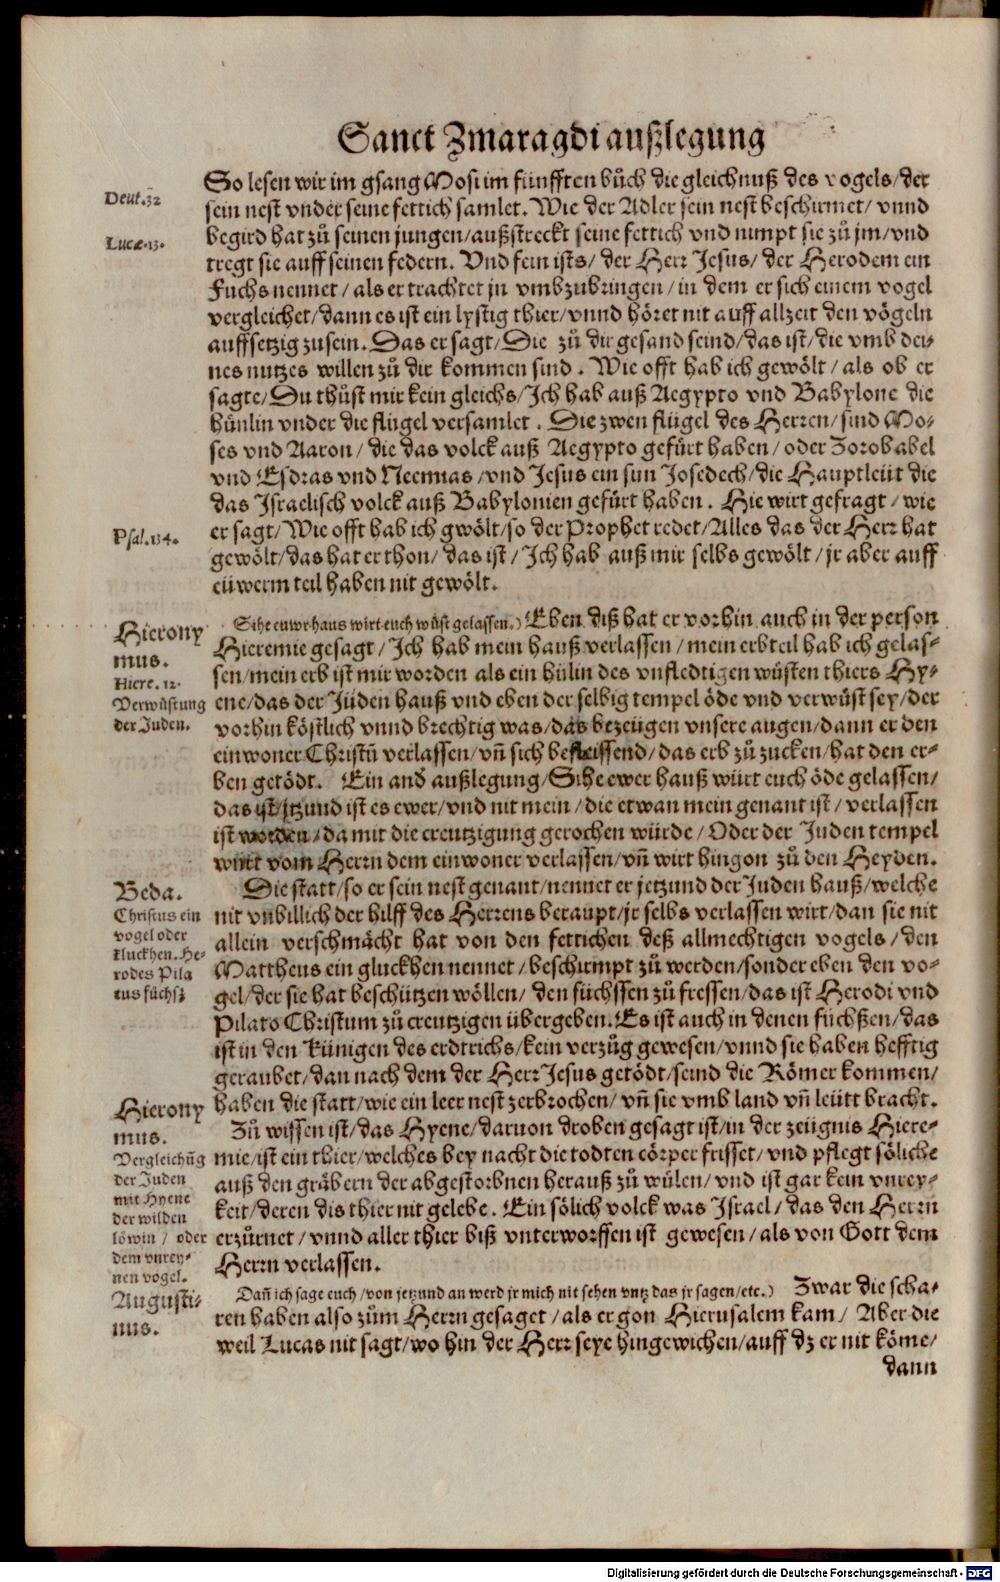 Sanct Zmaragdi außlegung
Deut.32
Luce.13.
So lesen wir im gsang Mosi im fünfften bůch die gleichnuß des vogels/der
sein nest vnder seine fettich samlet. Wie der Adler sein nest beschirmet/ vnnd
begird hat zů seinen jungen/außstreckt seine fettich vnd nimpt sie zů jm/vnd
tregt sie auff seinen federn. Vnd fein ists/ der Herr Jesus/ der Herodem ein
Fuchs nennet/ als er trachtet jn vmbzubringen/ in dem er sich einem vogel
vergleichet/dann es ist ein lystig thier/vnnd höret nit auff allzeit den vögeln
auffsetzig zusein. Das er sagt/Die zů dir gesand seind/das ist/die vmb dei-
nes nutzes willen zů dir kommen sind. Wie offt hab ich gewölt/ als ob er
sagte/Du thůst mir kein gleichs/Ich hab auß Aegypto vnd Babylone die
hünlin vnder die flügel versamlet. Die zwen flügel des Herren/sind Mo-
ses vnd Aaron/die das volck auß Aegypto gefürt haben/oder Zorobabel
vnd Esdras vnd Neemias/vnd Jesus ein sun Josedech/die Hauptleüt die
das Israelisch volck auß Babylonien gefürt haben. Hie wirt gefragt/wie
Psal.134.
er sagt/Wie offt hab ich gwölt/so der Prophet redet/Alles das der Herr hat
gewölt/das hat er thon/ das ist/Ich hab auß mir selbs gewölt/jr aber auff
eüwerm teil haben nit gewölt.
Hierony
mus.
Hiere.12.
Verwüstung
der Juden.
Sihe euwr haus wirt euch wüst gelassen.) Eben diß hat er vorhin auch in der person
Hieremie gesagt/Ich hab mein hauß verlassen/mein erbteil hab ich gelas-
sen/mein erb ist mir worden als ein hülin des vnfledtigen wüsten thiers Hy-
ene/das der Jüden hauß vnd eben der selbig tempel öde vnd verwüst sey/der
vorhin köstlich vnnd brechtig was/das bezeügen vnsere augen/dann er den
einwoner Christū verlassen/vn̄ sich befleissend/das erb zů zucken/hat den er-
ben getödt. Ein and außlegung/Sihe ewer hauß würt euch öde gelassen/
das ist/jtzund ist es ewer/vnd nit mein/die etwan mein genant ist/verlassen
ist worden/da mit die creutzigung gerochen würde/Oder der Juden tempel
wirt vom Herrn dem einwoner verlassen/vn̄ wirt hingon zů den Heyden.
Beda.
Christus ein
vogel oder
kluckhen. He-
rodes Pila
tus füchs.
Die statt/so er sein nest genant/nennet er jetzund der Juden hauß/welche
nit vnbillich der hilff des Herrens beraupt/jr selbs verlassen wirt/dan sie nit
allein verschmächt hat von den fettichen deß allmechtigen vogels/den
Mattheus ein gluckhen nennet/beschirmpt zů werden/sonder eben den vo-
gel/der sie hat beschützen wöllen/den füchssen zů fressen/das ist Herodi vnd
Pilato Christum zů creutzigen übergeben. Es ist auch in denen füchßen/das
ist in den Künigen des erdtrichs/kein verzüg gewesen/vnnd sie haben hefftig
geraubet/dan nach dem der Herr Jesus getödt/seind die Römer kommen/
haben die statt/wie ein leer nest zerbrochen/ vn̄ sie vmb land vn̄ leütt bracht.
Hierony
mus.
Vergleichūg
der Juden
mit Hyene
der wilden
löwin/ oder
dem vnrey-
nen vogel.
Zů wissen ist/das Hyene/daruon droben gesagt ist/in der zeügnis Hiere-
mie/ist ein thier/welches bey nacht die todten cörper frisset/vnd pflegt söliche
auß den gräbern der abgestorbnen herauß zů wülen/vnd ist gar kein vnrey-
keit/deren dis thier nit gelebe. Ein sölich volck was Israel/das den Herrn
erzürnet/vnnd aller thier biß vnterworffen ist gewesen/als von Gott dem
Herrn verlassen.
Augusti-
nus.
Dan̄ ich sage euch/von jetzund an werd jr mich nit sehen vntz das jr sagen/etc.) Zwar die scha-
ren haben also zům Herrn gesaget/als er gon Hierusalem kam/ Aber die
weil Lucas nit sagt/wo hin der Herr seye hingewichen/auff dz er nit köme/
dann
Digitalisierung gefördert durch die Deutsche Forschungsgemeinschaft - DFG